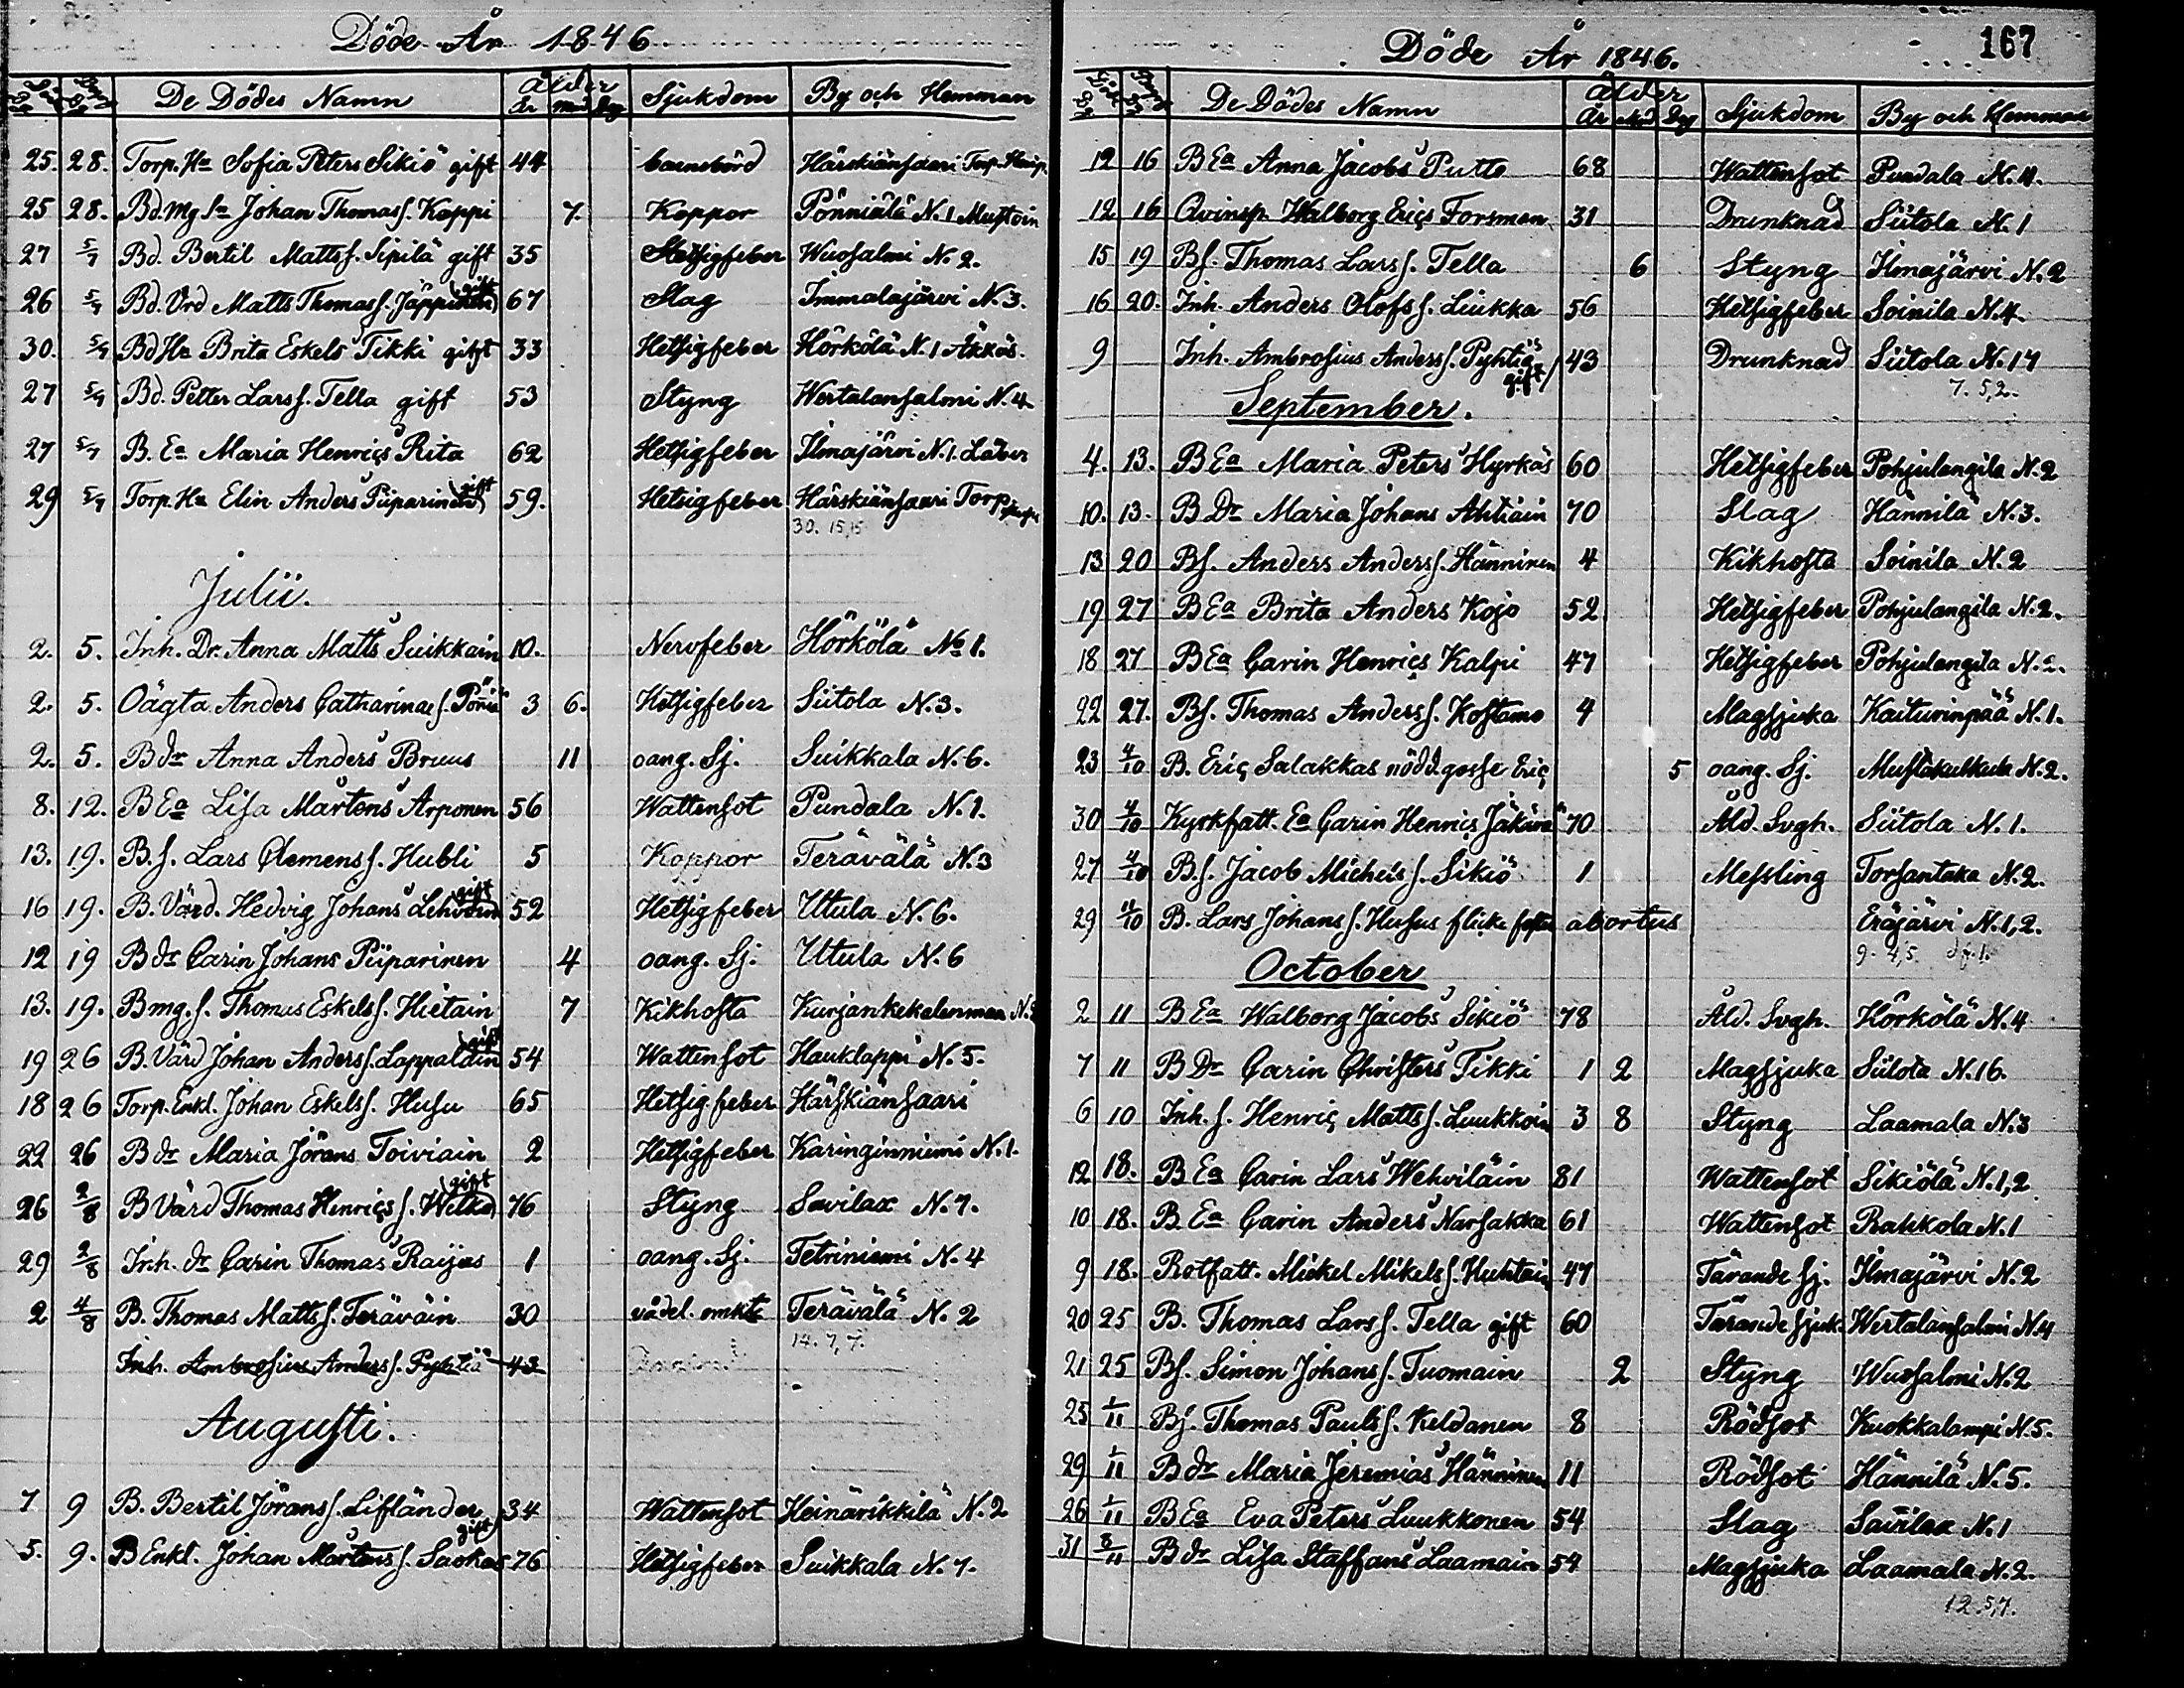 Döde År 1846
De Dödes Namn Ålder År Mån Dag Sjukdom By och Hemman
25. 28. Torp. Ha Sofia Peters Sikiö gift 44 barnsbörd Härskiänsaari Torp
25 28. Bd. mg Sn Johan Thomass. Koppi 7. Koppor Pönniälä N. 1 Mustoin
27 5/7 Bd. Bertil Mattss. Sipilä gift 35 Hetsigfeber Wuosalmi N. 2.
26 5/7 Bd. Vrd Matts Thomass. Jäppinen gift 67 Slag Immalajärvi N. 3.
30. 5/7 Bd Ha Brita Eskels Tikki gift 33 Hetsigfeber Hörkölä N. 1 Äkkäs.
27 5/7 Bd. Petter Larss. Tella gift 53 Styng Wertalansalmi N. 4
27 5/7 B. Ea Maria Henrics Rita 62 Hetsigfeber Ilmajärvi N. 1.
29 5/7 Torp. Ha Elin Anders Piiparinen gift 59. Hetsigfeber Härskiänsaari Torp
30. 15,15
Julii.
2. 5. Inh. Dr. Anna Matts Suikkain 10. Nervfeber Hörkölä No 1.
2. 5. Oägta Anders Catharinaes. Pöriä 3 6. Hetsigfeber Siitola N. 3.
2. 5. B dr Anna Anders Bruus 11 oang. Sj. Suikkala N. 6.
8. 12. B Ea Lisa Mårtens Arponen 56 Wattensot Pundala N. 1.
13. 19. B. s. Lars Clemenss. Hubli 5 Koppor Terävälä N. 3
16 19. B. Värd. Hedvig Johans Lehvoin gift 52 Hetsigfeber Utula N. 6.
12 19 B dr Carin Johans Piiparinen 4 oang. Sj. Utula N. 6
13. 19. B mg. s. Thomas Eskelss. Hietain 7 Kikhosta Kurjankekelenmaa N.
19 26 B. Värd Johan Anderss. Lappalain gift 54 Wattensot Hauklappi N. 5.
18 26 Torp. Enkl. Johan Eskelss. Husu 65 Hetsigfeber Härskiänsaari
22 26 B dr Maria Jörans Toiviain 2 Hetsigfeber Karinginniemi N. 1.
26 2/8 B Värd Thomas Henricss. Wilka gift 76 Styng Savilax N. 7.
29 2/8 Inh. dr Carin Thomas Raijas 1 oang. Sj. Tetriniemi N. 4
2 4/8 B. Thomas Mattss. Teräväin 30 vådel. omkt. Terävälä N. 2
14. 7, 7.
Inh. Ambrosius Anderss. Pyhtiä 43
Augusti.
7 9 B. Bertil Jöranss. Lifländer 34 Wattensot Heinärikkilä N. 2
5. 9. B Enkl. Johan Mårtenss. Saokas gift 76 Hetsigfeber Suikkala N. 7.
Döde År 1846. 167
De Dödes Namn Ålder År Mnd Dag Sjukdom By och Hemman
12 16 B Ea Anna Jacobs Putto 68 Wattensot Pundala N. 4.
12 16 Qvinsp. Walborg Erics Forsman 31 Drunknad Siitola N. 1
15 19 Bs. Thomas Larss. Tella 6 Styng Ilmajärvi N. 2
16 20. Inh. Anders Olofss. Liukka 56 Hetsigfeber Soinila N. 4
9 Inh. Ambrosius Anderss. Pyhtiä gift 43 Drunknad Siitola N. 17
7. 5,2.
September.
4. 13. B Ea Maria Peters Hyrkäs 60 Hetsigfeber Pohjulangila N. 2
10. 13. B Dr Maria Johans Ahtiain 70 Slag Hännilä N. 3.
13 20 Bs. Anders Anderss. Hänninen 4 Kikhosta Soinila N. 2
19 27 B Ea Brita Anders Kojo 52 Hetsigfeber Pohjulangila N. 2.
18 27 B Ea Carin Henrics Kalpi 47 Hetsigfeber Pohjulangila N. 2.
22 27. Bs. Thomas Anderss. Kostamo 4 Magsjuka Kaiturinpää N. 1.
23 4/10 B. Eric Salakkas nödd. gosse Eric 5 oang. Sj. Mustakulkula N. 2.
30 4/10 Kyrkfatt. Ea Carin Henrics Jäkärä 70 Åld. Svgh. Siitola N. 1.
27 4/10 B. s. Jacob Michelss. Sikiö 1 Messling Torsantaka N. 2.
29 4/10 B. Lars Johanss. Husus flicke foster abortus Eräjärvi N. 1,2.
9. 4,5.
October
2 11 B Ea Walborg Jacobs Sikiö 78 Åld. Svgh. Hörkölä N. 4
7 11 B Dr Carin Christers Tikki 1 2 Magsjuka Siitola N. 16.
6 10 Inh. s. Henric Mattss. Luukkoin 3 8 Styng Laamala N. 3
12 18. B Ea Carin Lars Wehviläin 81 Wattensot Sikiölä N. 1,2
10 18. B Ea Carin Anders Narsakka 61 Wattensot Rahkola N. 1
9 18. Rotfatt. Mickel Mikelss. Huhtain 47 Tärande sj. Ilmajärvi N. 2
20 25 B. Thomas Larss. Tella gift 60 Tärande sjuk. Wertalansalmi N. 4
21 25 Bs. Simon Johanss. Tuomain 2 Styng Wuosalmi N. 2
25 1/11 Bs. Thomas Paulss. Keldanen 8 Rödsot Kuokkalampi N. 5.
29 1/11 B dr Maria Jeremias Hänninen 11 Rödsot Hännilä N. 5.
26 1/11 B Ea Eva Peters Luukkonen 54 Slag Savilax N. 1
31 8/11 B dr Lisa Staffans Laamain 54 Magsjuka Laamala N. 2.
12. 5,7.